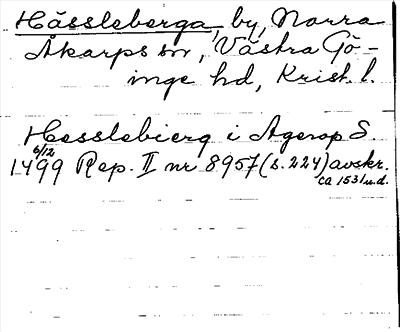 Hässleberga, by, Norra
Åkarps sn, Västra Gö-
inge hd, Krist. l.
Hesslebierg i Agerop S.
6/12
1499 Rep. II nr 8957 (s. 224) avskr.
ca 1531 u.d.